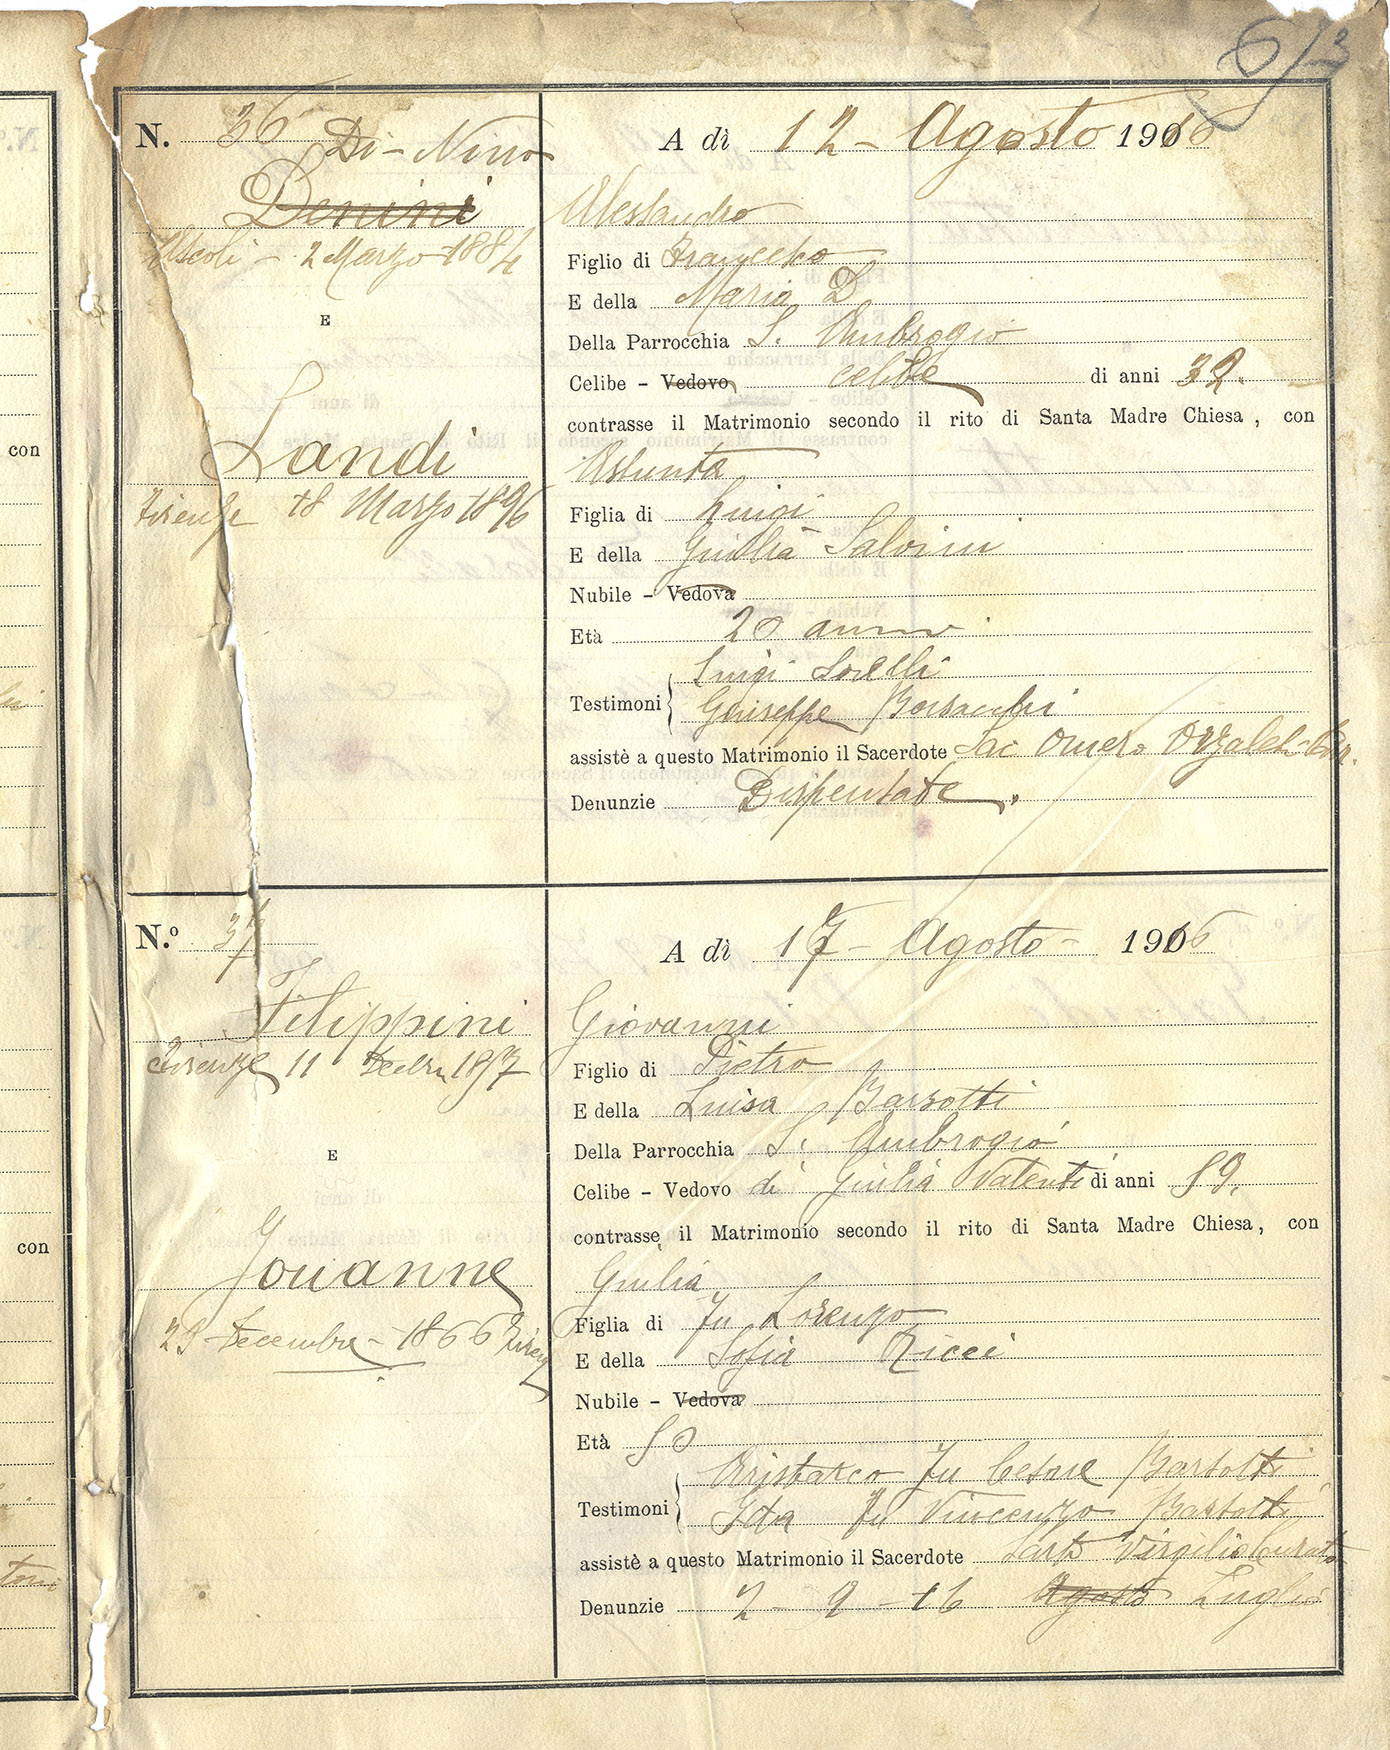 6/3
N. 36 Di-Nino
Denini
Ascoli - 2 Marzo 1884
E
Landi
Firenze 18 Marzo 1896
A dì 12 - Agosto 1916
Alessandro
Figlio di Francesco
E della Maria D
Della Parrocchia S. Ambrogio
Celibe - Vedovo celibe di anni 32.
contrasse il Matrimonio secondo il rito di Santa Madre Chiesa, con
Assunta
Figlia di Luigi
E della Giulia Salvini
Nubile - Vedova
Età 20 anni
Testimoni Luigi Lorelli
Giuseppe
assistè a questo Matrimonio il Sacerdote Sac Omero
Denunzie Dispensate.
N.º 37
Filippini
Firenze 11 Decbr 1857
E
Jouanne
23 Decembre - 1866 Firenze
A dì 17 - Agosto - 1916
Giovanni
Figlio di Pietro
E della Luisa Barsotti
Della Parrocchia S. Ambrogio
Celibe - Vedovo di Giulia Valenti di anni 59.
contrasse il Matrimonio secondo il rito di Santa Madre Chiesa, con
Giulia
Figlia di fu Lorenzo
E della Sofia Ricci
Nubile - Vedova
Età 50
Testimoni Aristarco fu Cesare Bartolti
Ida fu Vincenzo Bartolti
assistè a questo Matrimonio il Sacerdote Sarti Virgilio Curato
Denunzie 2 - 9 - 16 Agosto Luglio
con
con